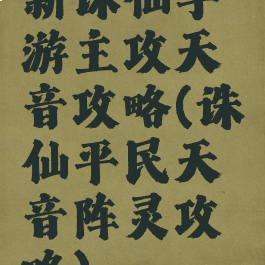 新诛仙手
游主攻天
音攻略(诛
仙平民天
音阵灵攻
略)